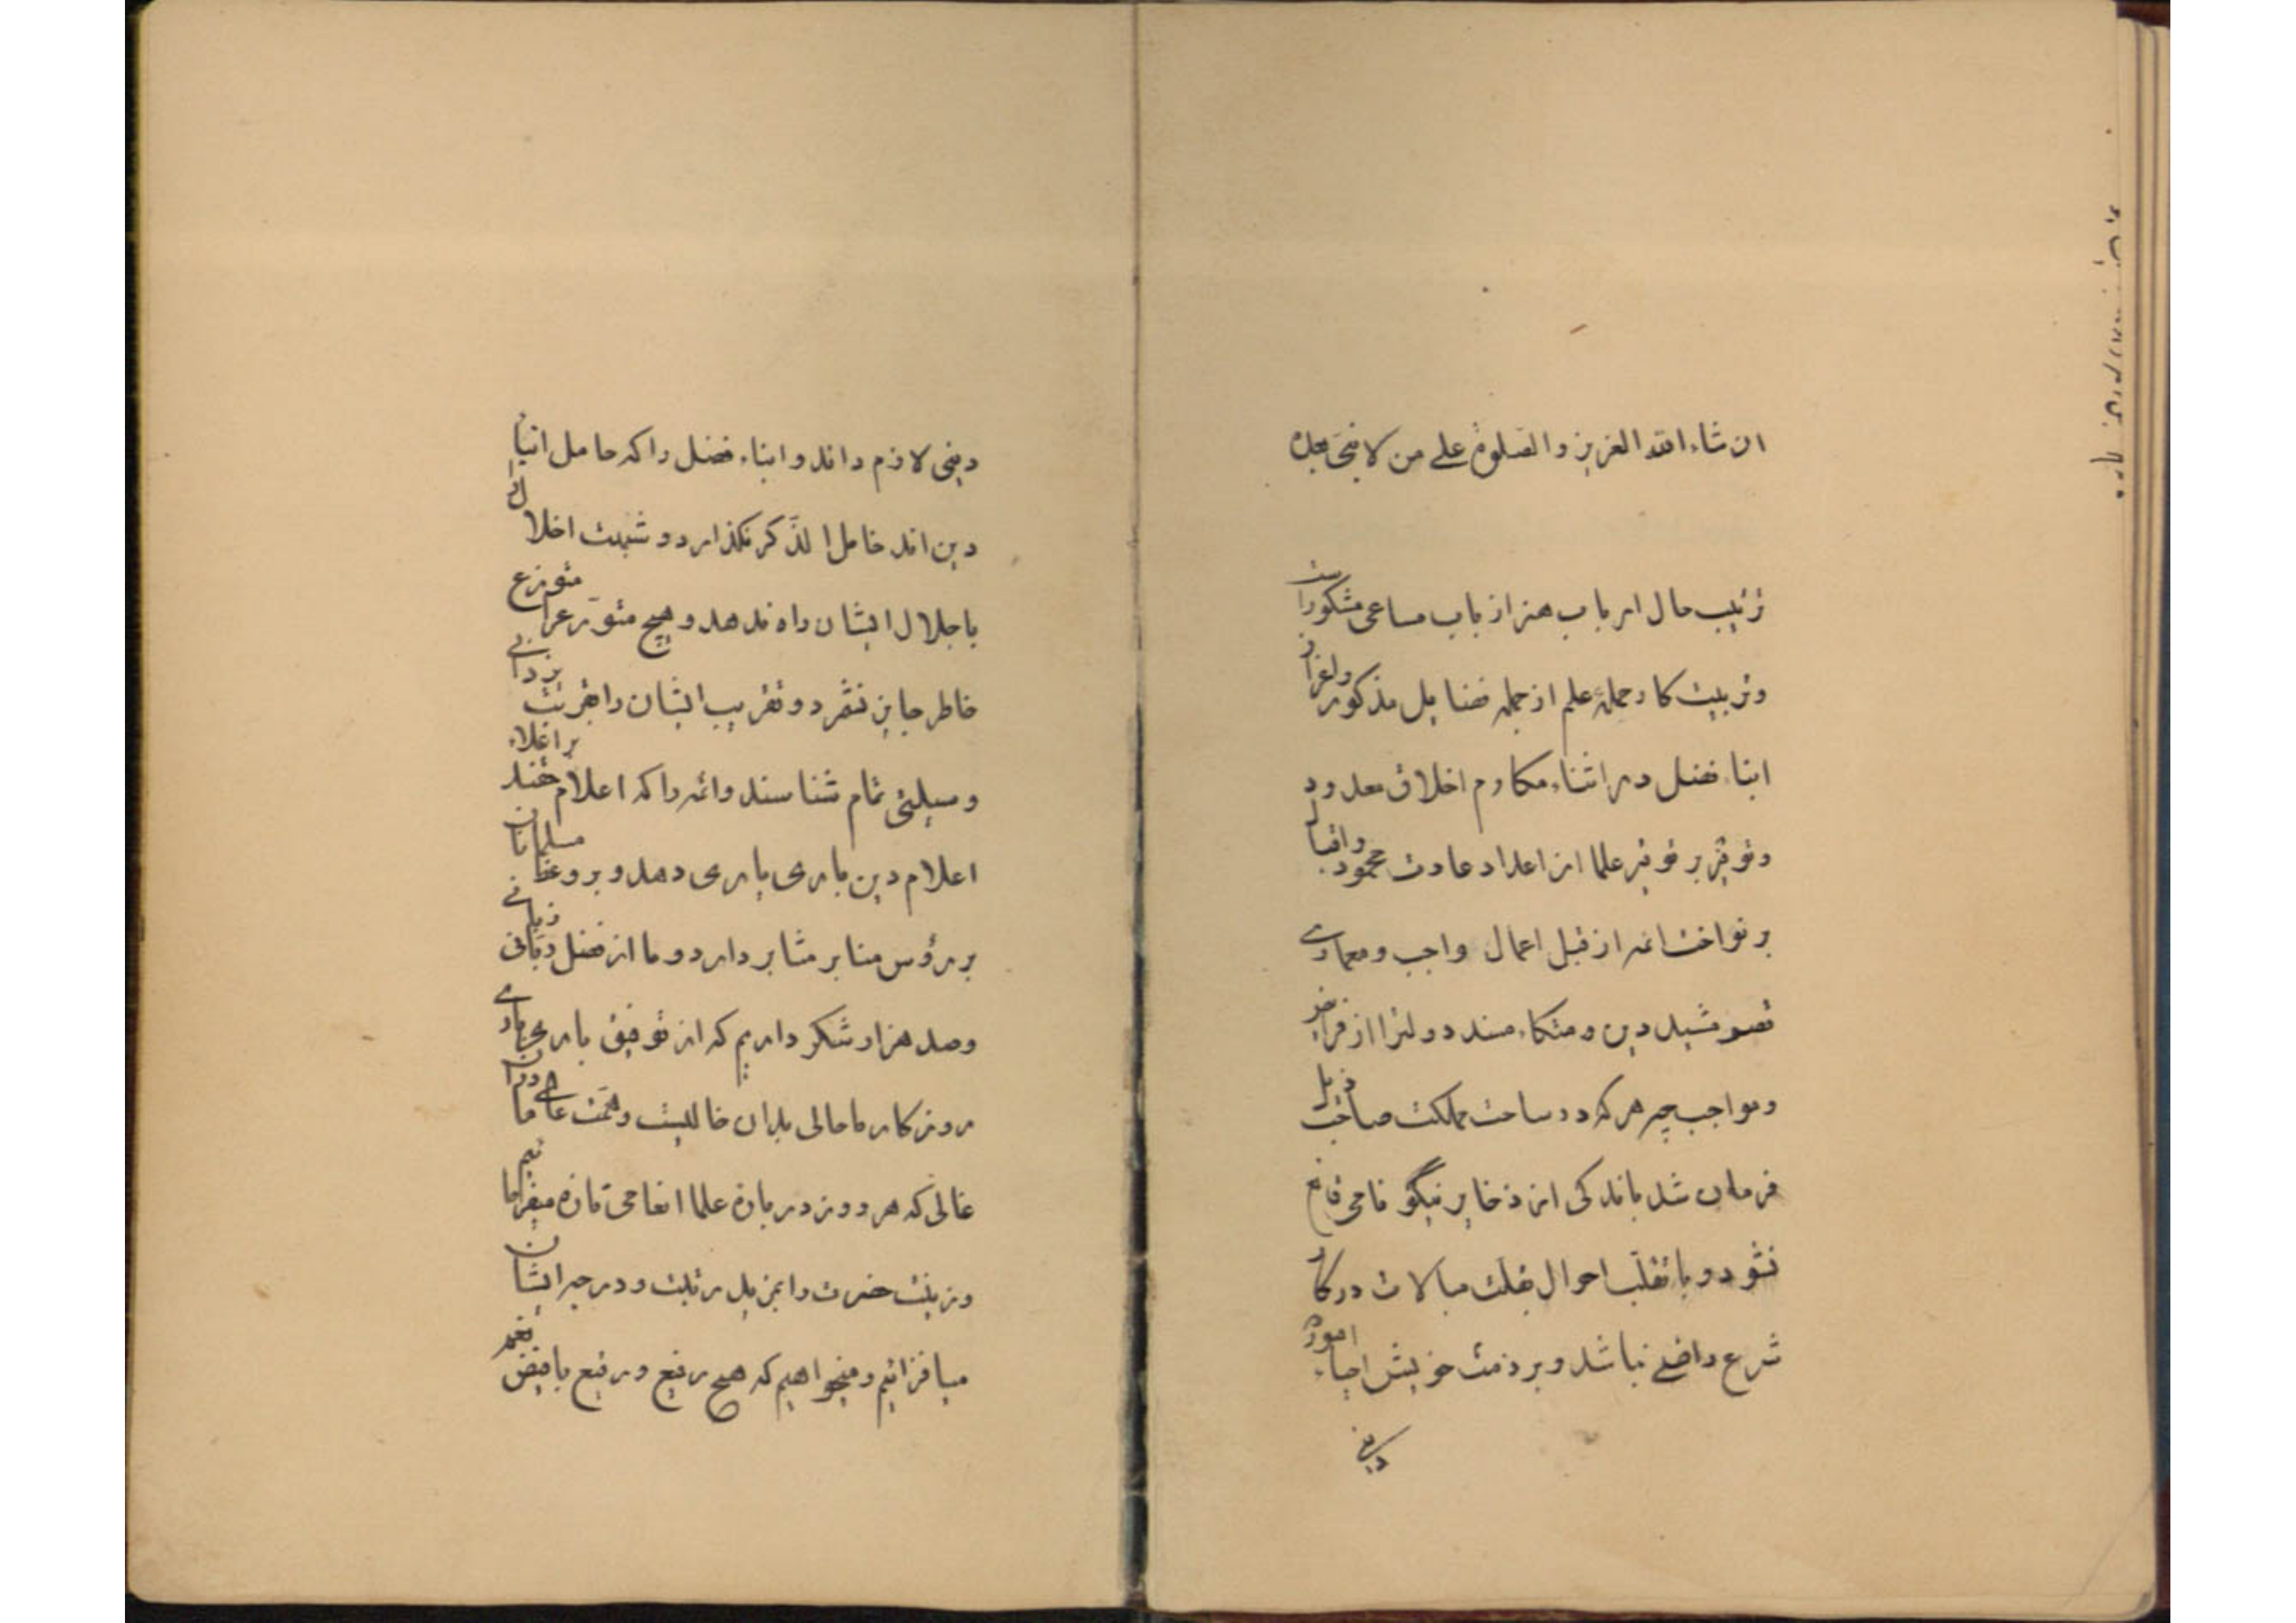 ان شاء الله العزیز والصلوة علی من لا نبی بعده
ترتیب حال ارباب هنر از باب مساعی مشکورست
وتربیت کار جملهٔ علم از جمله فضایل مذکور واعزاز
ابناء فضل در اثناء مکارم اخلاق معدود
وتوقیر علما از اعداد عادت محمود واقبال
بر نواخت ائمه از قبل اعمال واجب ومعماری
قصر مشید دین ومتکاء مسند دولترا از فرایض
ومواجب چه هر که در ساحت مملکت صاحب ذیل
فرمان شد باندکی از ذخایر نیکو نامی قانع
نشود و با تقلب احوال بقلت مبالات در کار
شرع راضی نباشد وبر ذمت خویش احیاء امور
دینی
دینی لازم داند وابناء فضل را که حامل انباء
دین اند خامل الذکر نگذارد و شبهت اخلال
باجلال ایشان راه ندهد وهیچ متورعرا متوزع
خاطر جایز نشمرد وتقریب ایشان را بقربت یزدانی
وسیلتی تمام شناسند وائمه را که اعلام
اعلام دین باری یاری دهد و بر مسلمانان
بر رؤس منابر مثابر دارد و ما از فضل ربانی
وصد هزار شکر داریم که از توفیق باری
روزکار ما حالی بدان حالیست وهمت عالی ما
غالی که هر روز در بارهٔ علما انعامی تازه میفرماییم
وزینت حضرت را بمزید رتبت ودرجه ایشان
میافزائیم ومیخواهیم که هیچ رفیع ورضیع